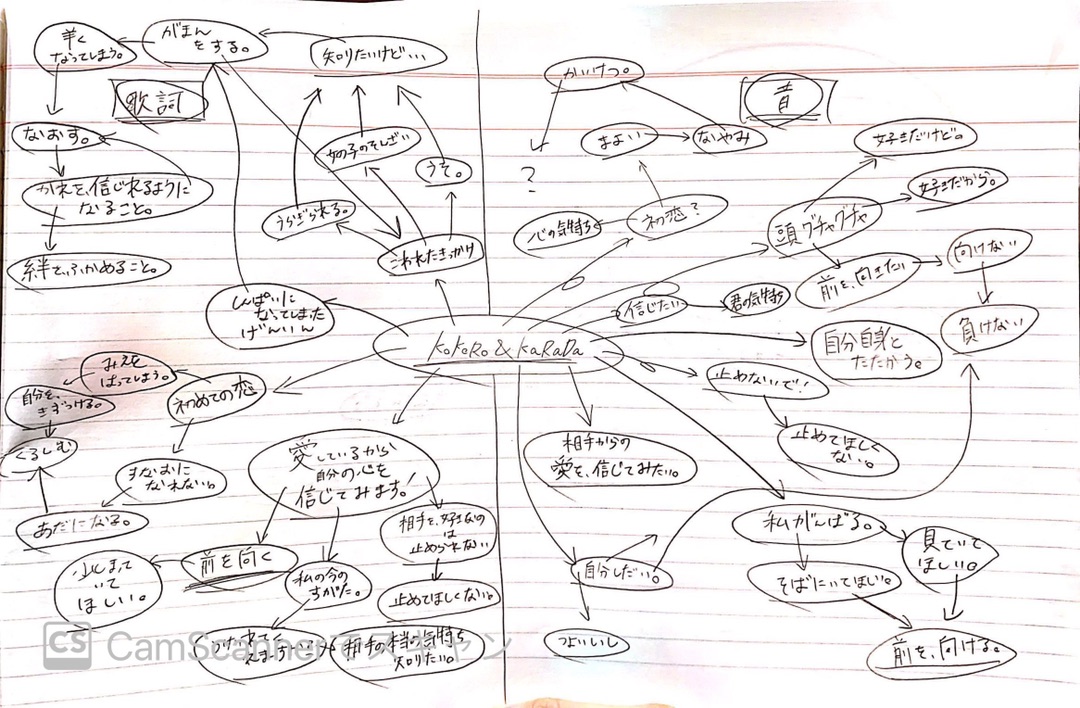 がまん
をする。
なってしまう。
知りたいけど…
歌詞
なおす。
女の子のそんざい
うそ。
信じれるように
なること。
うらぎられる。
こわれたきっかけ
絆でふかめること。
しんぱいに
なってしまった
げんいん
かいけつ。
音
まよい
なやみ
?
好きだけど。
好きだから。
初恋?
心の気持ち
頭グチャグチャ
前を、向きたい
向けない
負けない
信じたい
君の気持ち
KoKoRo & KaRaDa
自分自身と
たたかう。
止めないで!
止めてほしく
ない。
みえを
はってしまう。
自分を、
きずつける。
初めての恋
くるしむ
すなおに
なれない。
あだになる。
愛しているから
自分の心を
信じてみます!
相手を、好きなの
は
止められない
前を向く
私の今の
すがた。
止めてほしくない。
いて
ほしい。
相手の本当の気持ち
知りたい。
相手からの
愛を、信じてみたい。
自分しだい。
つよいいし
私がんばる。
そばにいてほしい。
見ていて
ほしい。
前を、向ける。
CS CamScannerでスキャン